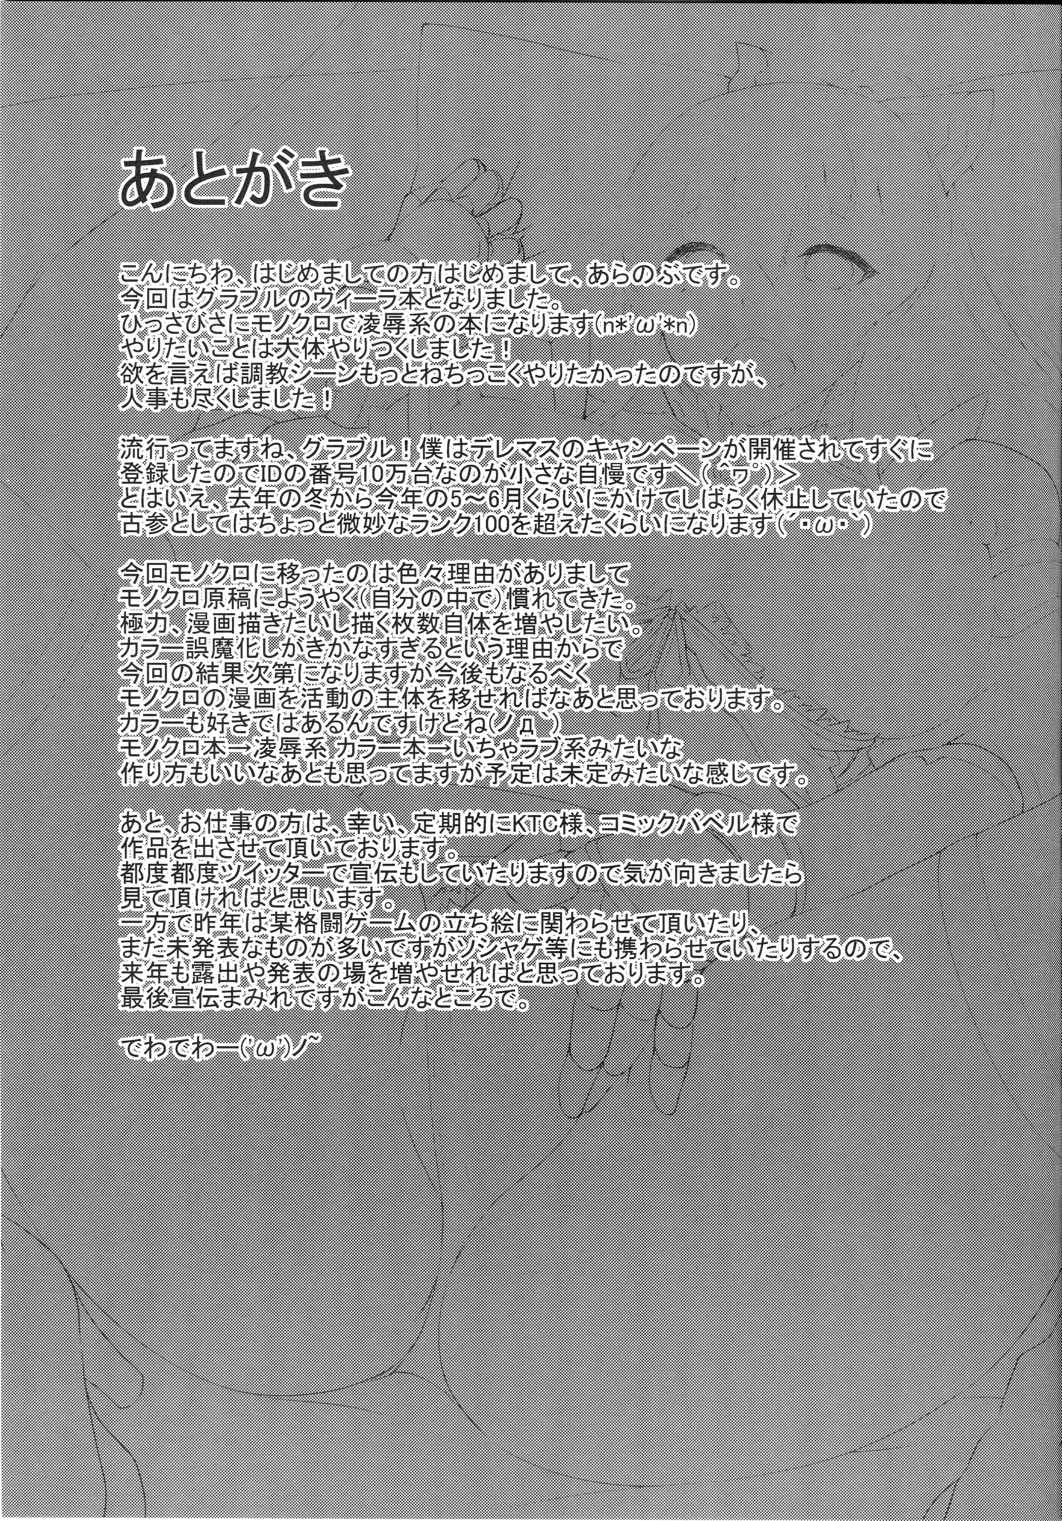 あとがき
こんにちわ、はじめましての方はじめまして、あらのぶです。
今回はグラブルのヴィーラ本となりました。
ひっさびさにモノクロで凌辱系の本になります(n*'ω'*n)
やりたいことは大体やりつくしました！
欲を言えば調教シーンもっとねちっこくやりたかったのですが、
人事も尽くしました！
流行ってますね、グラブル！僕はデレマスのキャンペーンが開催されてすぐに
登録したのでIDの番号10万台なのが小さな自慢です＼( ^ヮﾟ)＞
とはいえ、去年の冬から今年の5～6月くらいにかけてしばらく休止していたので
古参としてはちょっと微妙なランク100を超えたくらいになります(´・ω・`)
今回モノクロに移ったのは色々理由がありまして
モノクロ原稿にようやく(自分の中で)慣れてきた。
極力、漫画描きたいし描く枚数自体を増やしたい。
カラー誤魔化しがきかなすぎるという理由からで
今回の結果次第になりますが今後もなるべく
モノクロの漫画を活動の主体を移せればなあと思っております。
カラーも好きではあるんですけどね(ノд`)
モノクロ本→凌辱系 カラー本→いちゃラブ系みたいな
作り方もいいなあとも思ってますが予定は未定みたいな感じです。
あと、お仕事の方は、幸い、定期的にKTC様、コミックバベル様で
作品を出させて頂いております。
都度都度ツイッターで宣伝もしていたりますので気が向きましたら
見て頂ければと思います。
一方で昨年は某格闘ゲームの立ち絵に関わらせて頂いたり、
まだ未発表なものが多いですがソシャゲ等にも携わらせていたりするので、
来年も露出や発表の場を増やせればと思っております。
最後宣伝まみれですがこんなところで。
でわでわー('ω')ノ~